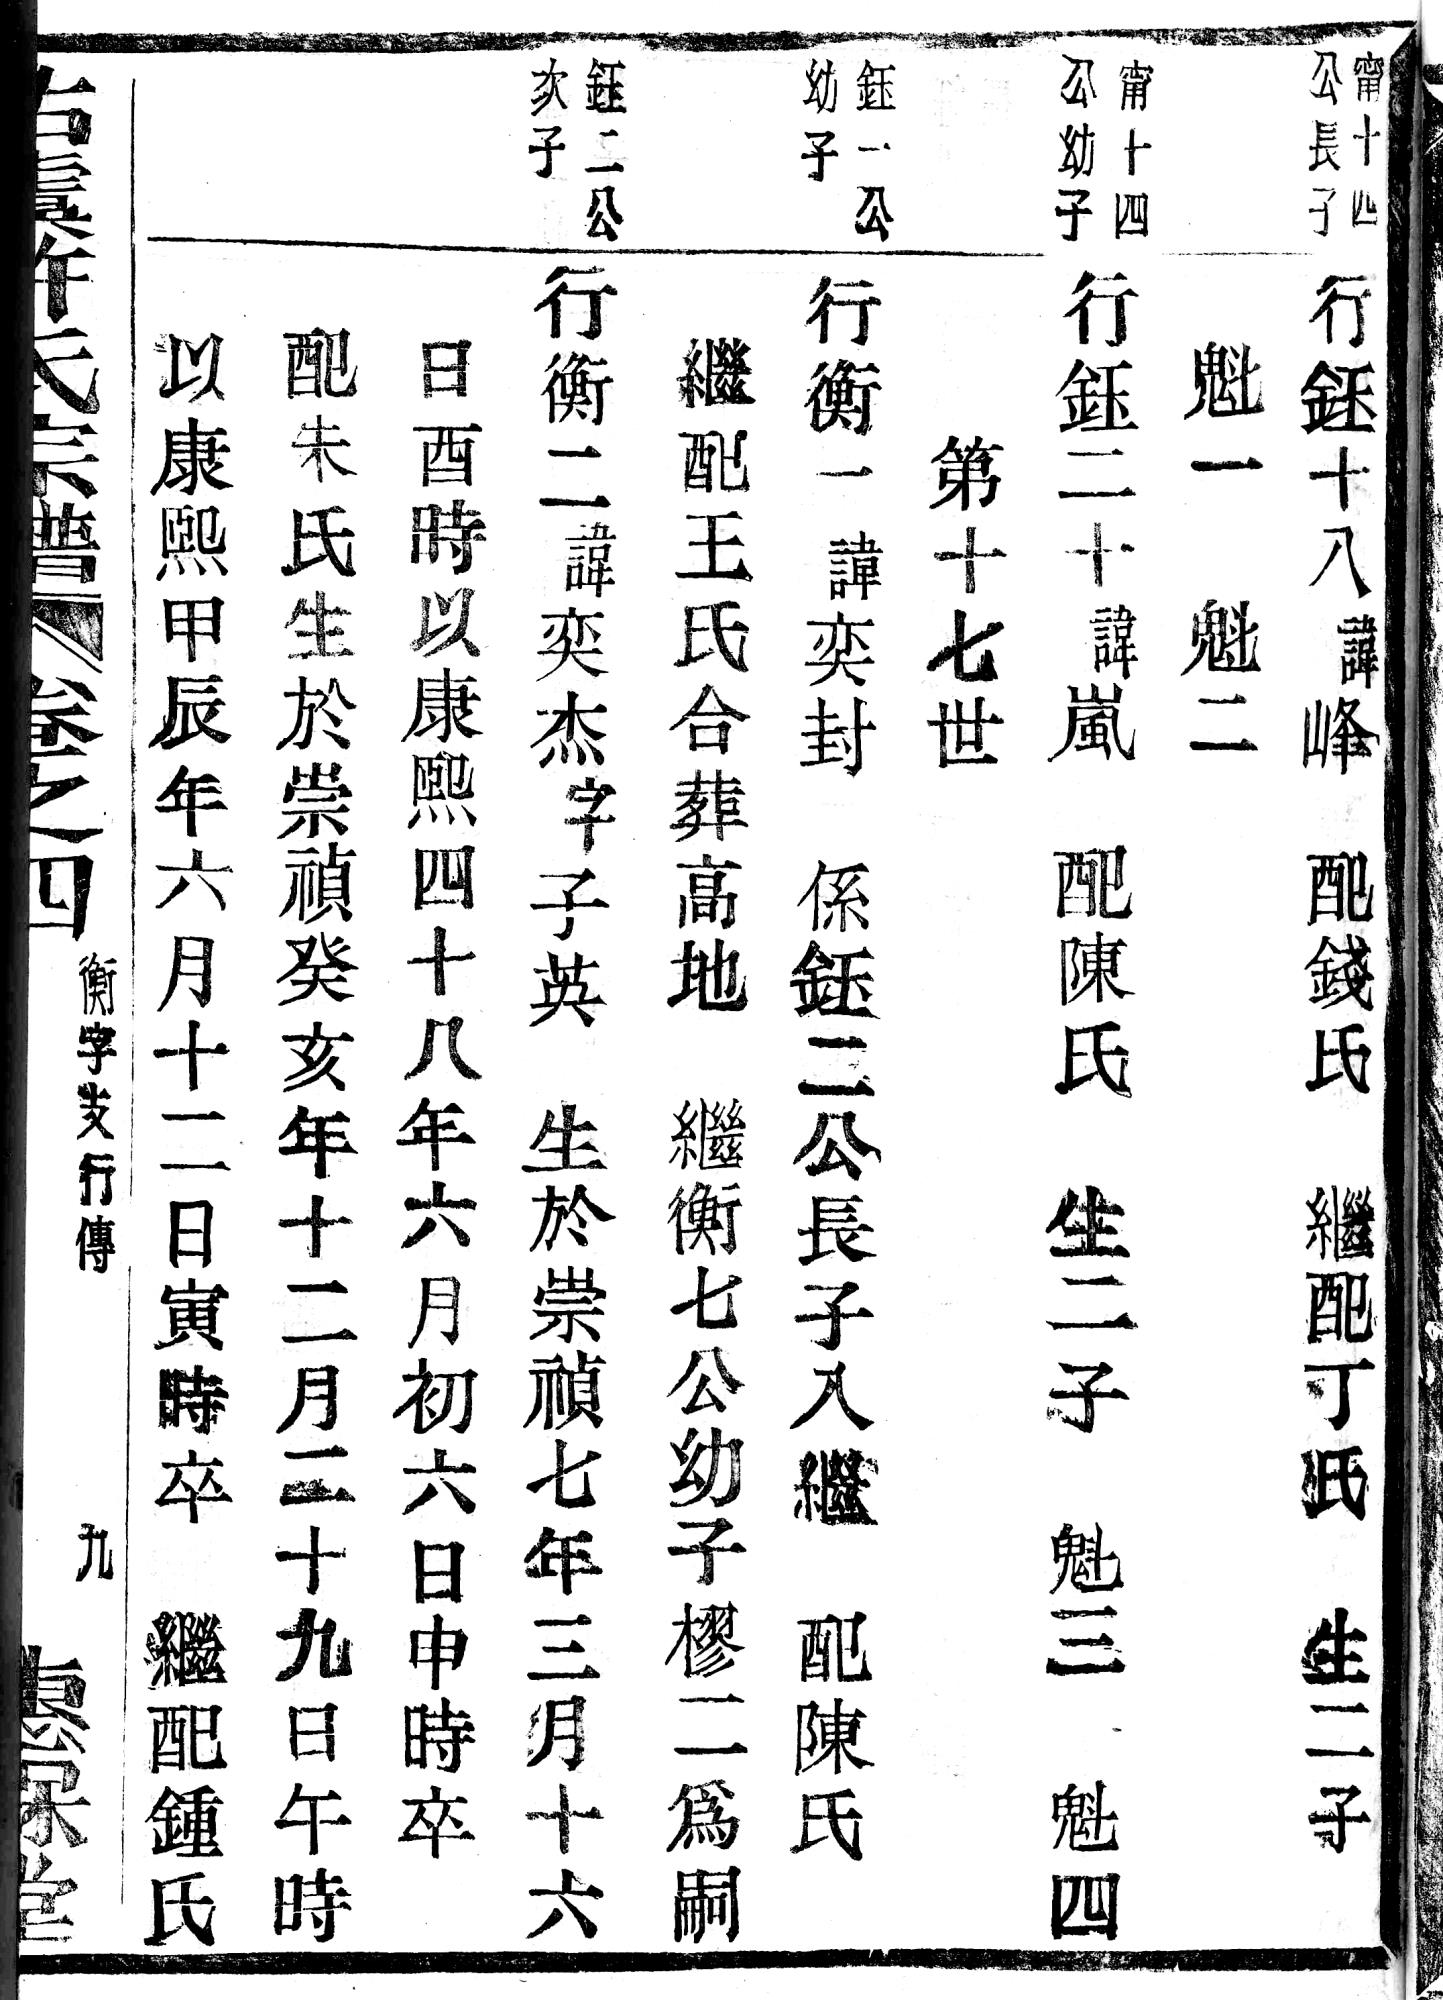 甯十四
公長子
行鈺十八諱峰 配錢氏 繼配丁氏 生二子
魁一 魁二
甯十四
公幼子
行鈺二十諱嵐 配陳氏 生二子 魁三 魁四
第十七世
鈺一公
幼子
行衡一諱奕封 係鈺二公長子入繼 配陳氏
繼配王氏合葬高地 繼衡七公幼子樛二爲嗣
鈺二公
次子
行衡二諱奕杰字子英 生於崇禎七年三月十六
日酉時以康熙四十八年六月初六日申時卒
配朱氏生於崇禎癸亥年十二月二十九日午時
以康熙甲辰年六月十二日寅時卒 繼配鍾氏
古虞許氏宗譜 卷之四
衡字支行傳
九
堂